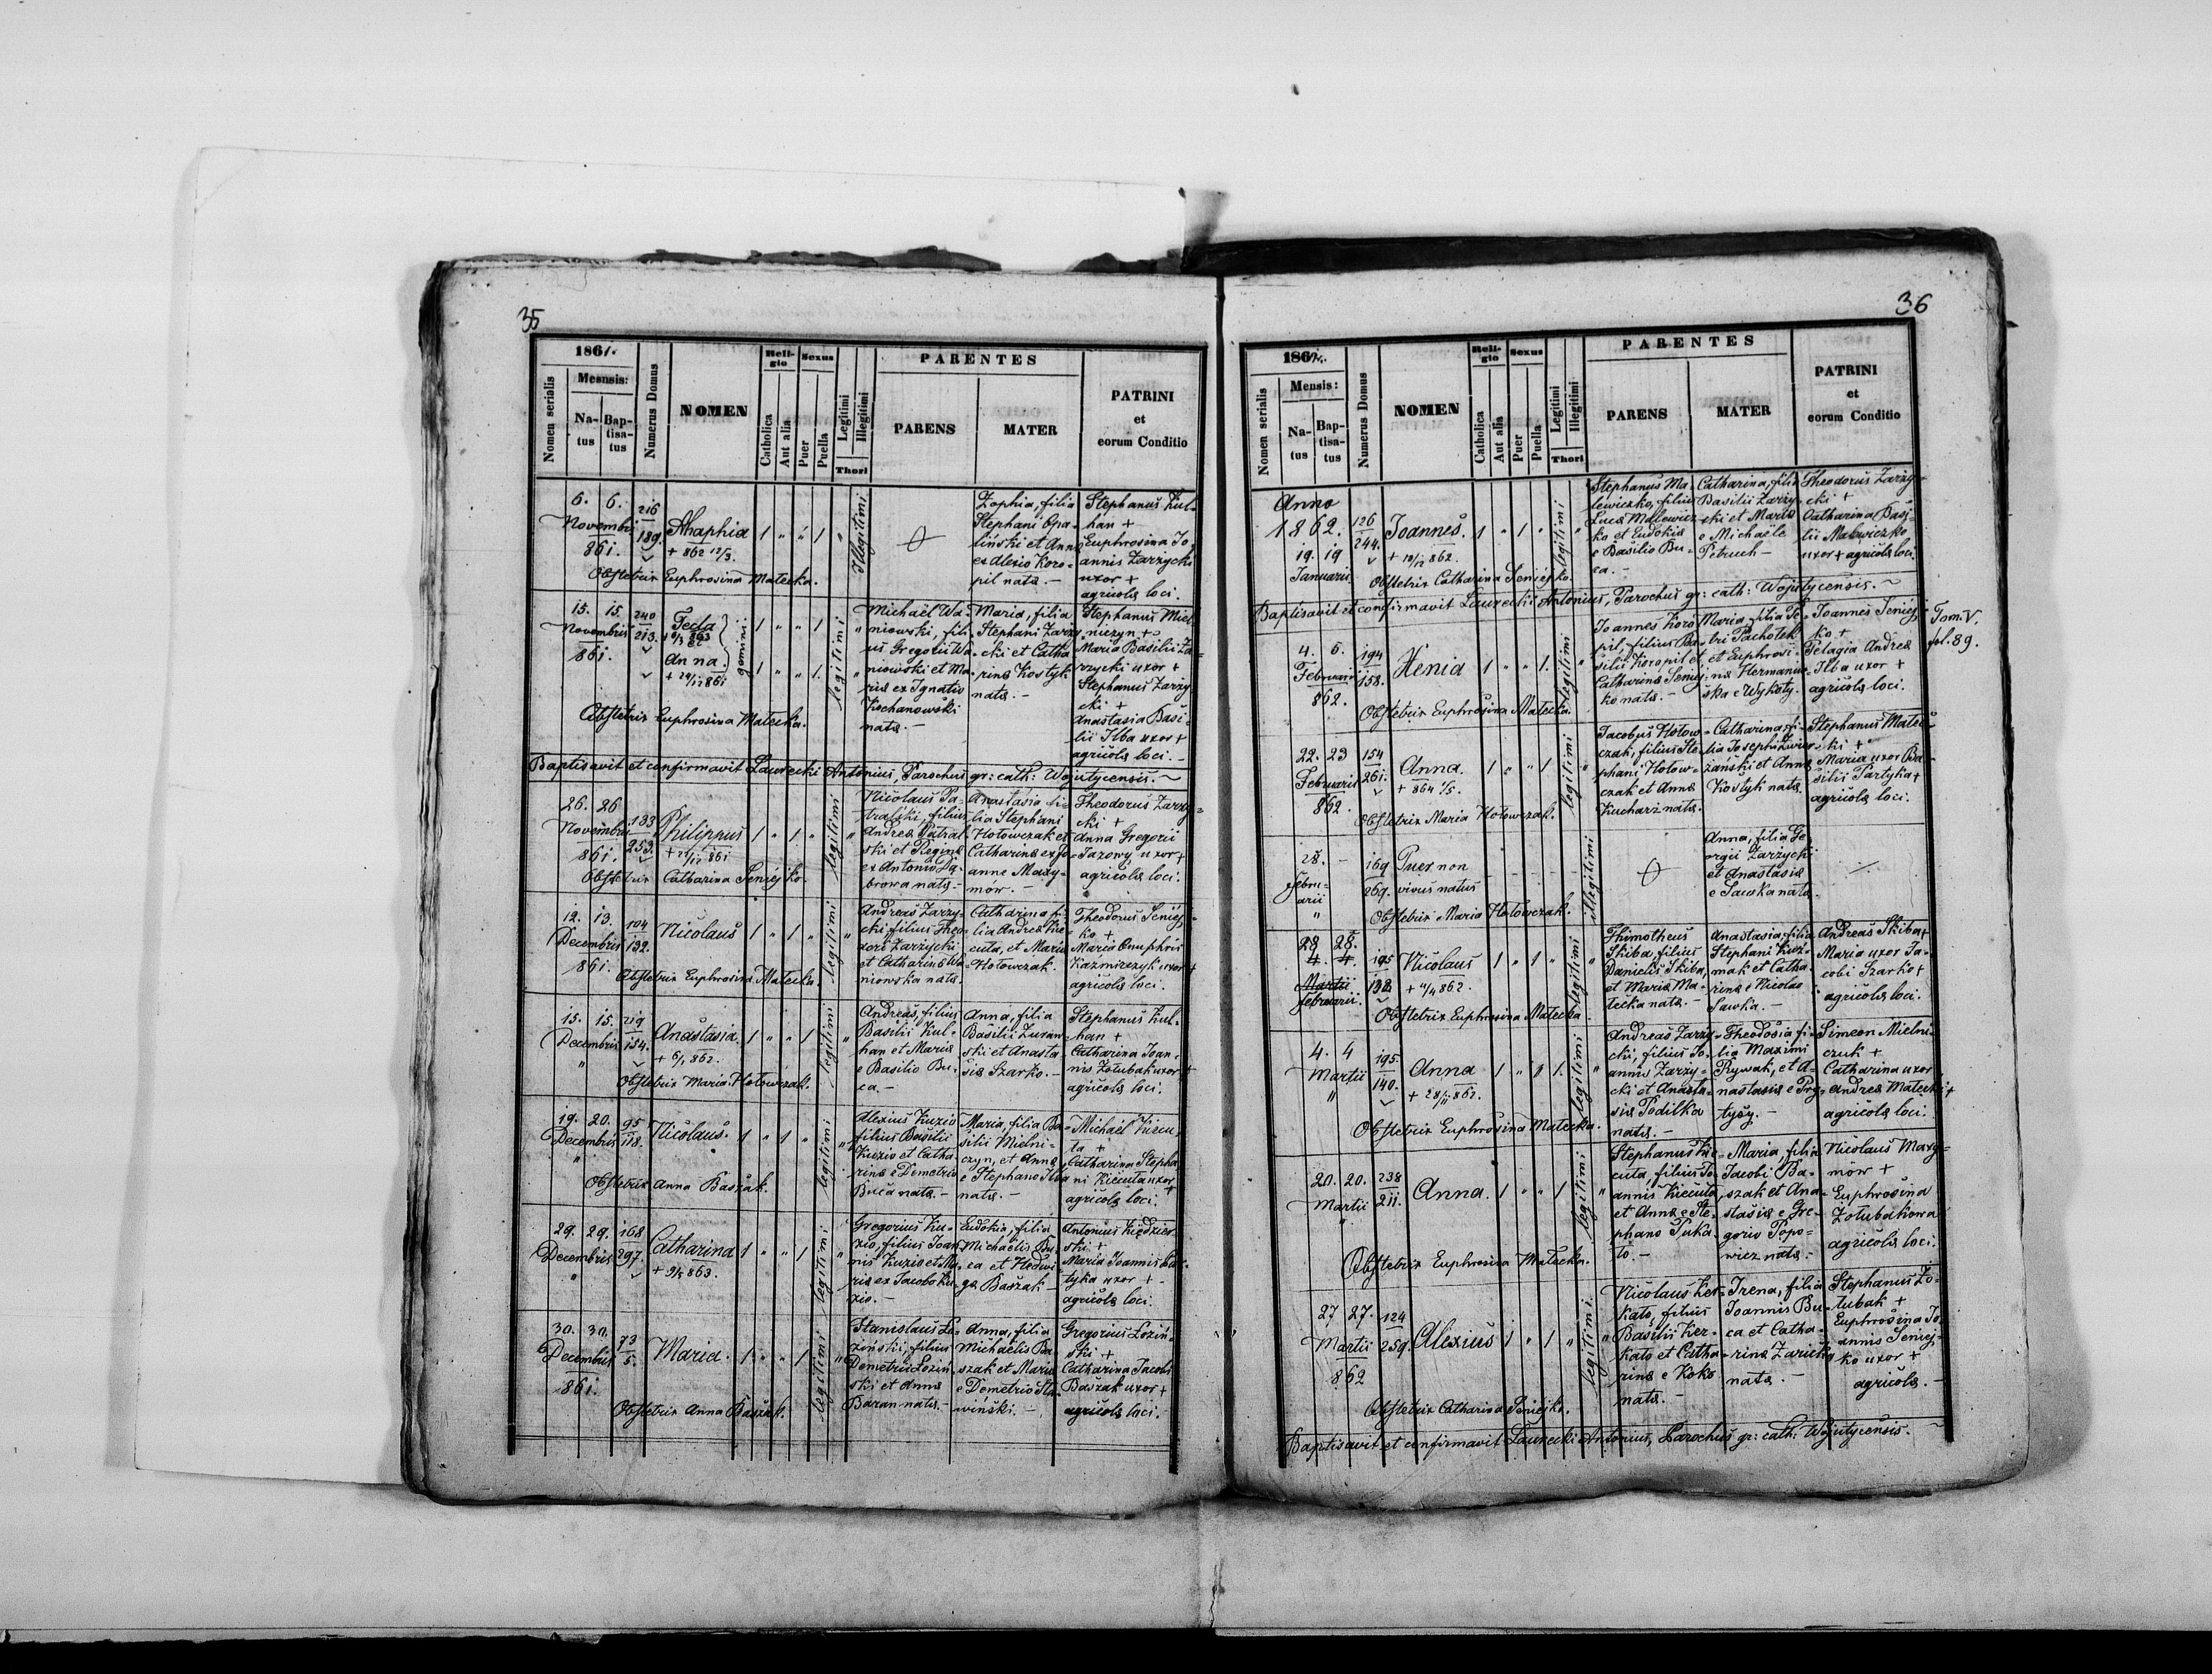 35
1861.
Nomen serialis
Mesnsis:
Natus
Baptisatus
Numerus Domus
NOMEN
Religio
Catholica
Aut alia
Sexus
Puer
Puella
Legitimi
Illegitimi
Thori
PARENTES
PARENS
MATER
PATRINI
et
eorum Conditio
6. 6.
Novembris
861.
216
189.
Ahaphia
+ 862 12/3.
1 " " 1 "
Illegitimi
Zophia, filia
Stephani Opa-
liński et Anna
ex Alexio Koro-
pil nata. -
Stephanus Kul-
han +
Euphrosina Jo-
annis Zarzycki
uxor +
agricolæ loci.
Obstetrix Euphrosina Matecka.
15. 15.
Novembris
861.
240
213.
Tecla
Anna
gemini.
1 " " 1
1 " " 1.
legitimi
Michaël Wa-
niowski, fili-
us Gregorii Wa-
niowski et Ma-
ria ex Ignatio
Kochanowski
nata. -
Maria, filia
Stephani Zarzy-
cki et Catha-
rina Kostyk
nata. -
Stephanus Miel-
niczyn +
Maria Basilii Za-
rzycki uxor +
Stephanus Zarzy-
cki +
Anastasia Basi-
lii Ilba uxor +
agricolæ loci. -
Obstetrix Euphrosina Matecka.
Baptisavit et confirmavit Laurecki Antonius, Parochus gr: cath: Wojutycensis. ~
26. 26
Novembris
861.
133
253.
Philippus
1 " 1 "
legitimi
Nicolaus Pa-
tralski, filius
Andreæ Patral-
ski et Regina
ex Antonio Dą-
browa nata. -
Anastasia fi-
lia Stephani
Hołowczak et
Catharina ex Jo-
anne Maxy-
mów. -
Theodorus Zarzy-
cki +
Anna Gregorii
Jazowy uxor +
agricolæ loci.
Obstetrix Catharina Seniejko.
12. 13.
Decembris
861.
104
132.
Nicolaus
1 " 1 "
legitimi
Andreas Zarzy-
cki filius Theo-
dori Zarzycki
et Catharina Wa-
niowska nata.
Catharina fi-
lia Andreæ Kie-
cuta, et Maria
Hołowczak.
Theodorus Seniej-
ko +
Maria Onuphrii
Kaźmirczyk uxor +
agricolæ loci.
Obstetrix Euphrosina Matecka.
15. 15.
Decembris
"
219
154.
Anastasia.
+ 6/1 862.
1 " " 1
legitimi
Andreas, filius
Basilii Kul-
han et Maria
e Basilio Bu-
ca. -
Anna, filia
Basilii Zuran-
ski et Anasta-
sia Szarko. -
Stephanus Kul-
han +
Catharina Joan-
nis Żołubak uxor +
agricolæ loci.
Obstetrix Maria Hołowczak.
19. 20.
Decembris
"
95
118.
Nicolaus.
1 " 1 "
legitimi
Alexius Kuzio
filius Basilii
Kuzio et Catha-
rina e Demetrio
Buca nata. -
Maria, filia Ba-
silii Mielni-
czyn, et Anna
e Stephano Ilba
nata. -
Michaël Kiecu-
ta +
Catharina Stepha-
ni Kiecuta uxor +
agricolæ loci.
Obstetrix Anna Baszak.
29. 29.
Decembris
"
168
297.
Catharina
+ 9/5 863.
1 " " 1
legitimi
Gregorius Ku-
zio, filius Joan-
nis Kuzio et Ma-
ria ex Jacobo Ku-
zio. -
Eudokia, filia
Michaëlis Bu-
ca et Hedwi-
ga Baszak -
Antonius Kiędzier-
ski +
Maria Joannis
uxor +
agricolæ loci.
30. 30.
Decembris
861.
73
5.
Maria.
1 " " 1
legitimi
Stanislaus Ło-
ziński, filius
Demetrii Łoziń-
ski et Anna
Baran nata. -
Anna, filia
Michaëlis Ba-
szak et Maria
e Demetrio Sta-
wiński. -
Gregorius Łoziń-
ski +
Catharina Jacobi
Baszak uxor +
agricolæ loci. -
Obstetrix Anna Baszak.
36
1862.
Nomen serialis
Mensis:
Natus
Baptisatus
Numerus Domus
NOMEN
Religio
Catholica
Aut alia
Sexus
Puer
Puella
Legitimi
Illegitimi
Thori
PARENTES
PARENS
MATER
PATRINI
et
eorum Conditio
Anno
1862.
19. 19
Januarii
126
244.
Joannes.
+ 10/12 862.
1 " 1 "
legitimi
Stephanus Ma-
lewiczko, filius
Lucæ Malewicz-
ko et Eudokia
e Basilio Bu-
ca. -
Catharina, filia
Basilii Zarzy-
cki et Maria
e Michaële
Petruch -
Theodorus Zarzy-
cki +
Catharina Basi-
lii Malewiczko
uxor + agricolæ loci
Obstetrix Catharina Seniejko.
Baptisavit et confirmavit Laurecki Antonius, Parochus gr: cath: Wojutycensis. ~
4. 5.
Februarii
862.
194
158.
Xenia
1 " " 1.
legitimi
Joannes Koro-
pil, filius Ba-
silii Koropil et
Catharina Seniej-
ko nata. -
Maria, filia Pe-
tri Pachołek
et Euphrosi-
na Hermanie-
ska e Wykoty.
Joannes Seniej-
ko +
Pelagia Andreæ
Ilba uxor +
agricolæ loci.
Tom. V.
fol. 89.
Obstetrix Euphrosina Matecka.
22. 23
Februarii
862.
154
261.
Anna.
+ 864 1/5.
1 " " 1
legitimi
Jacobus Hołow-
czak, filius Ste-
phani Hołow-
czak et Anna
Kucharz nata.
Catharina fi-
lia Josephi
et Anna
Kostyk nata.
Stephanus Mate-
cki +
Maria uxor Ba-
silii Partyka +
agricolæ loci.
Obstetrix Maria Hołowczak.
28. -
Febru-
arii
"
169
269.
Puer non
vivus natus
illegitimi
Anna, filia Ge-
orgii Zarzycki
et Anastasia
e Sawka nata.
Obstetrix Maria Hołowczak.
28 28.
4. 4.
Martii
februarii.
195
Nicolaus
+ 11/4 862.
1 " 1 "
legitimi
Thimotheus
Skiba, filius
Danielis Skiba,
et Maria Ma-
tecka nata. -
Anastasia, filia
Stephani Kuź-
mak et Catha-
rina e Nicolao
Sawka. -
Andreas Skiba +
Maria uxor Ja-
cobi Szarko +
agricolæ loci.
Obstetrix Euphrosina Matecka.
4. 4
Martii
"
195.
140.
Anna
1 " " 1.
legitimi
Andreas Zarzy-
cki, filius Jo-
annis Zarzy-
cki et Anasta-
sia Podilka
nata. -
Theodosia fi-
lia Maximi
Rywak, et A-
nastasia e Pry-
tysy. -
Simeon Mielni-
czuk +
Catharina uxor
Andreæ Matecki +
agricolæ loci.
Obstetrix Euphrosina Matecka.
20. 20.
Martii
"
238
211.
Anna.
1 " " 1
legitimi
Stephanus Kie-
cuta, filius Jo-
annis Kiecuta,
et Anna e Ste-
phano Puka-
ło. -
Maria, filia
Jacobi Ba-
szak et Ana-
stasia e Gre-
gorio Popo-
wicz nata. -
Nicolaus Maxy-
mów +
Euphrosina
Żołubakowa
agricolæ loci.
Obstetrix Euphrosina Matecka.
27 27.
Martii
862
124
259.
Alexius
1 " 1 " "
legitimi.
Nicolaus Ker-
kało, filius
Basilii Ker-
kało et Catha-
rina e Koko
nata. -
Irena, filia
Joannis Bu-
ca et Catha-
rina Zaricki
nata. -
Stephanus Żo-
łubak +
Euphrosina Jo-
annis Seniej-
ko uxor +
agricolæ. -
Obstetrix Catharina Seniejko.
Baptisavit et confirmavit Laurecki Antonius, Parochus gr: cath: Wojutycensis. ~